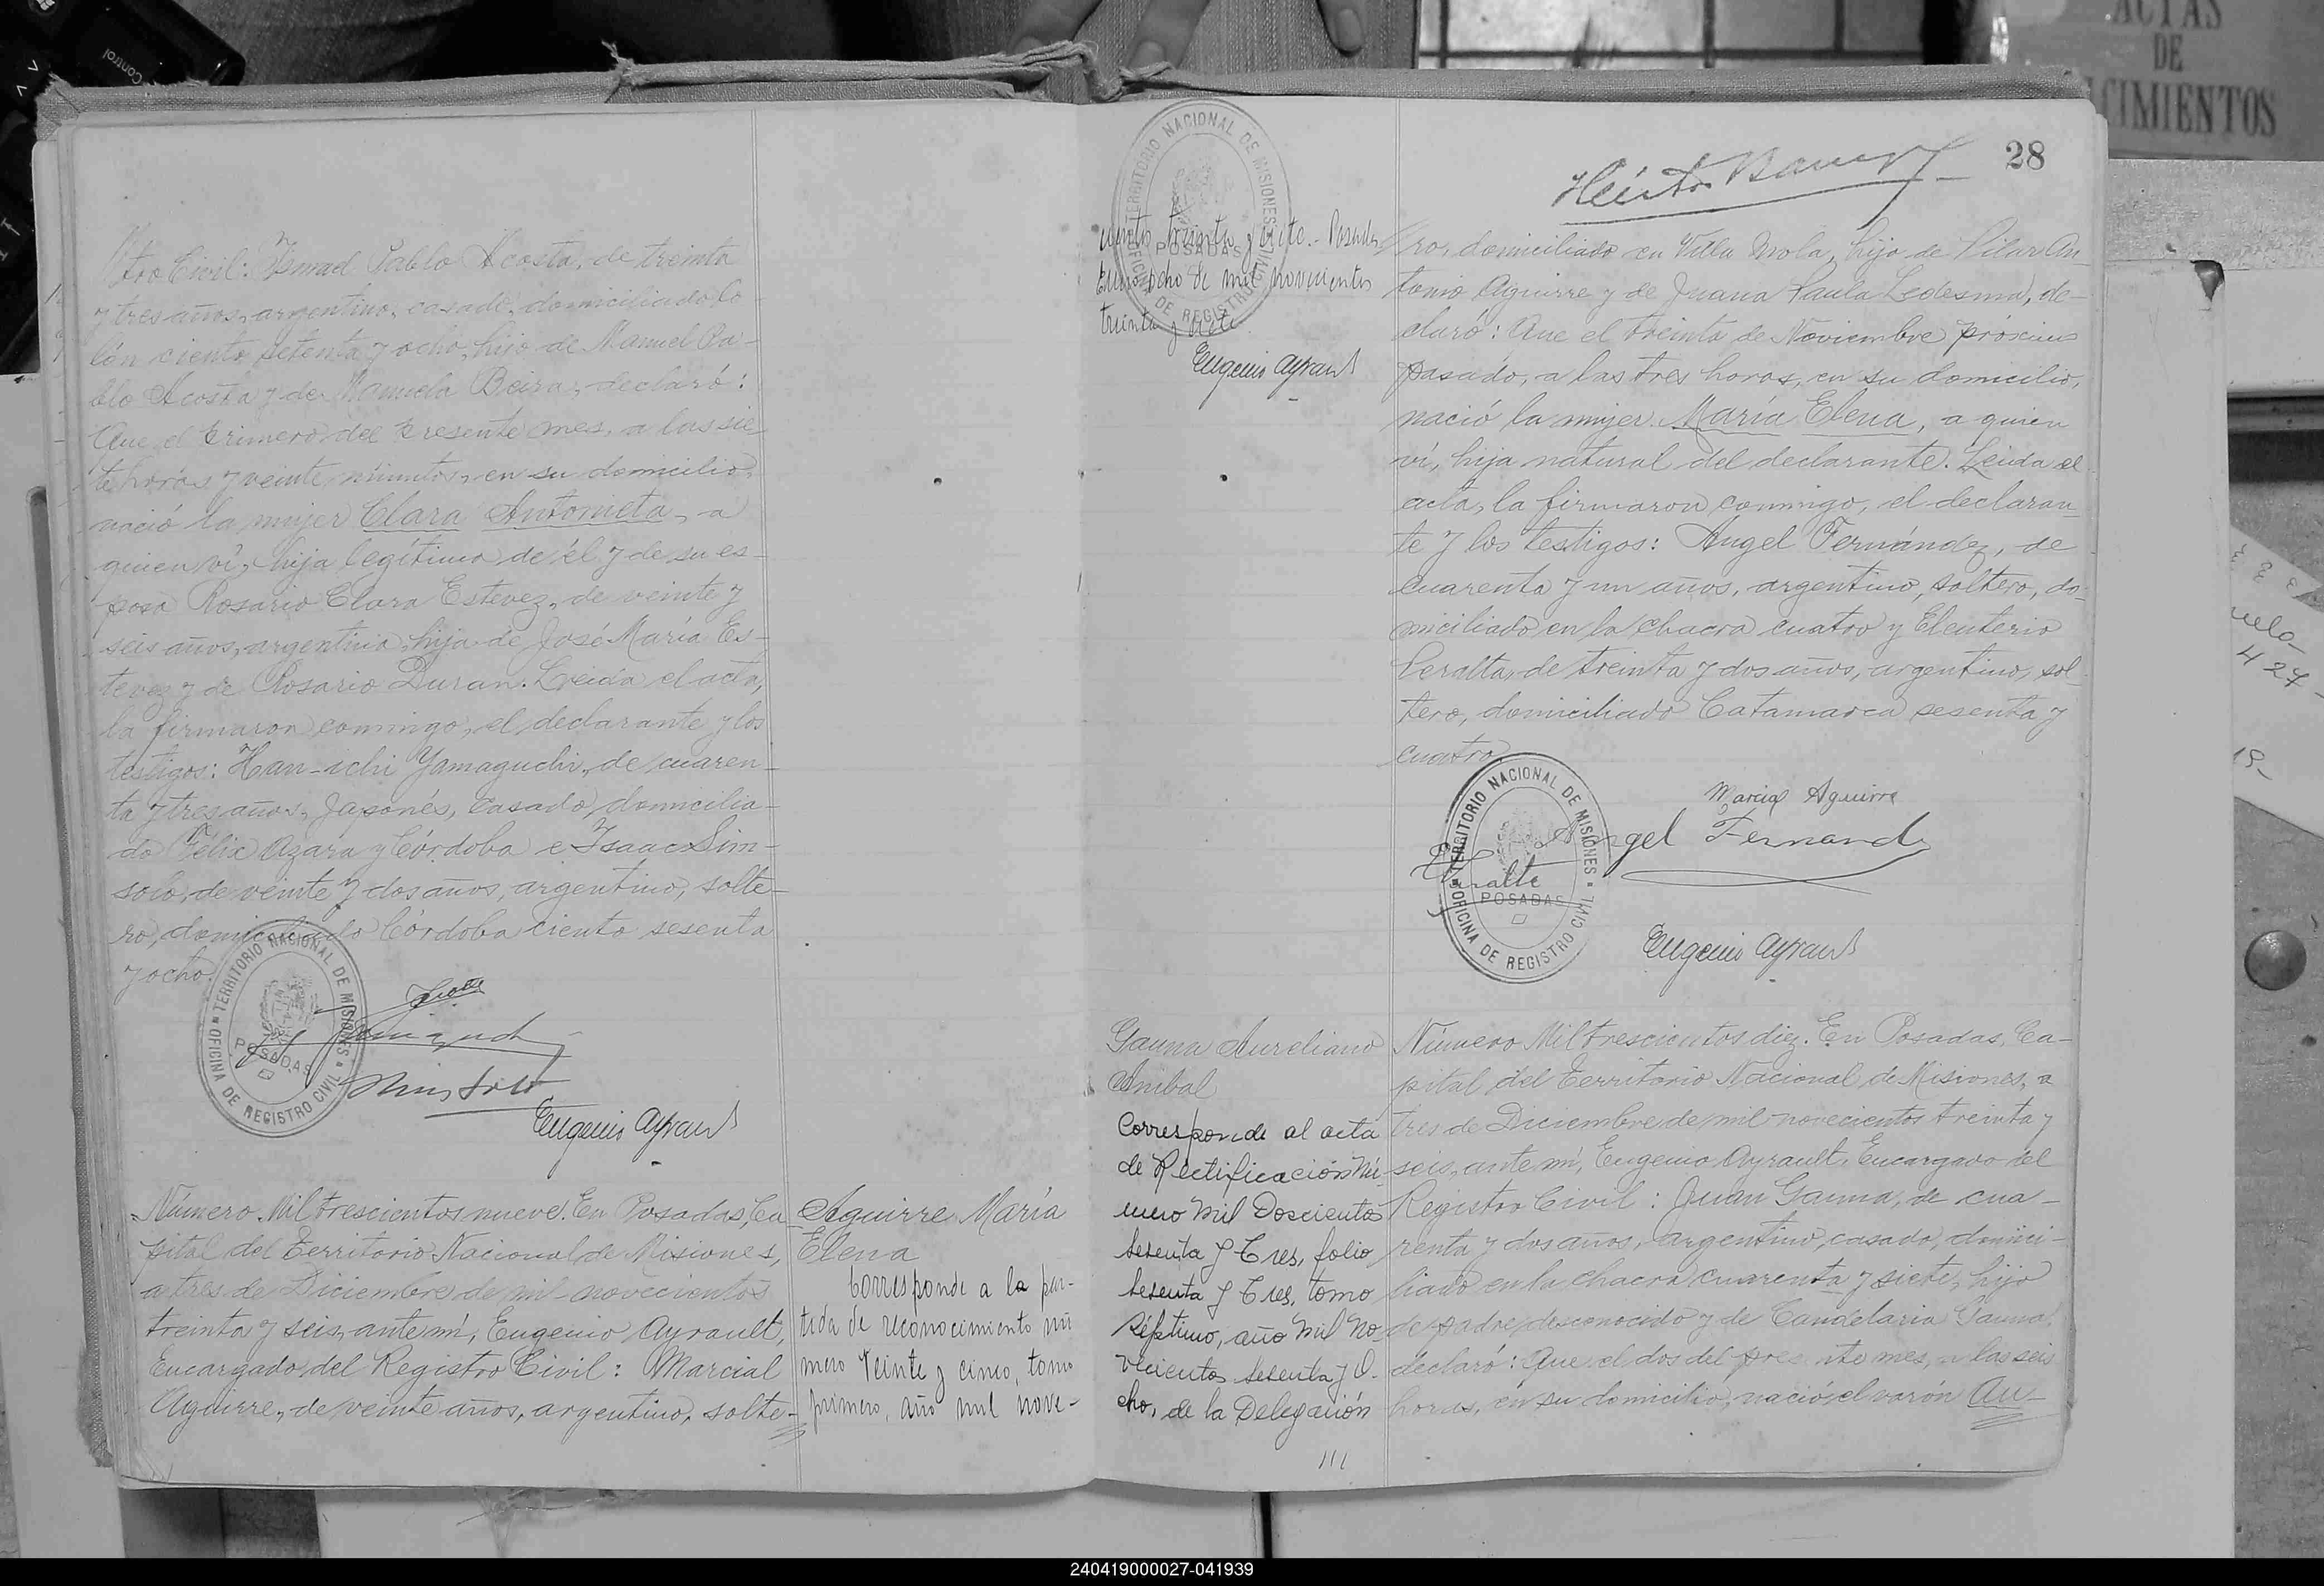 tro Civil: Ismael Pablo Acosta, de treinta
y tres años, argentino, casado, domiciliado Co-
lón ciento setenta y ocho, hijo de Manuel Pa-
blo Acosta y de Manuela Beira, declaró:
Que el primero del presente mes, a las sie-
te horas y veinte minutos, en su domicilio,
nació la mujer Clara Antonieta, a
quien ví, hija legítima de él y de su es-
posa Rosario Clara Estevez, de veinte y
seis años, argentina, hija de José María Es-
tevez y de Rosario Duran. Leída el acta,
la firmaron conmigo, el declarante y los
testigos: Han-ichi Yamaguchi, de cuaren-
ta y tres años, Japonés, casado, domicilia-
do Félix Azara y Córdoba e Isaac Sim-
solo, de veinte y dos años, argentino, solte-
ro, domiciliado Córdoba ciento sesenta
y ocho.
TERRITORIO NACIONAL DE MISIONES
POSADAS
OFICINA DE REGISTRO CIVIL
Eugenio Ayrault
Número Mil trescientos nueve. En Posadas, Ca-
pital del Territorio Nacional de Misiones,
a tres de Diciembre de mil novecientos
treinta y seis, ante mí, Eugenio Ayrault,
Encargado del Registro Civil: Marcial
Aguirre, de veinte años, argentino, solte-
Aguirre María
Elena
Corresponde a la par-
tida de reconocimiento nú
mero veinte y cinco, tomo
primero, año mil nove-
cientos treinta y siete.- Posadas
Enero ocho de mil novecientos
treinta y siete.
Eugenio Ayrault
TERRITORIO NACIONAL DE MISIONES
POSADAS
OFICINA DE REGISTRO CIVIL
28
ro, domiciliado en Villa Mola, hijo de Pilar An-
tonio Aguirre y de Juana Paula Ledesma, de-
claró: Que el treinta de Noviembre próximo
pasado, a las tres horas, en su domicilio,
nació la mujer María Elena, a quien
ví, hija natural del declarante. Leída el
acta, la firmaron conmigo, el declaran-
te y los testigos: Angel Fernández, de
cuarenta y un años, argentino, soltero, do-
miciliado en la chacra cuatro y Eleuterio
Peralta, de treinta y dos años, argentino, sol-
tero, domiciliado Catamarca sesenta y
cuatro
Marcial Aguirre
Angel Fernand
E Peralta
TERRITORIO NACIONAL DE MISIONES
POSADAS
OFICINA DE REGISTRO CIVIL
Eugenio Ayrault
Gauna Aureliano
Anibal
Corresponde al acta
de Rectificación Nú-
mero Mil Doscientos
Setenta y Tres, folio
Setenta y Tres, tomo
Séptimo, año Mil No-
vecientos Setenta y O-
cho, de la Delegación
Número Mil trescientos diez. En Posadas, Ca-
pital del Territorio Nacional de Misiones, a
tres de Diciembre de mil novecientos treinta y
seis, ante mí, Eugenio Ayrault, Encargado del
Registro Civil: Juan Gauna, de cua-
renta y dos años, argentino, casado, domici-
liado en la chacra cuarenta y siete, hijo
de padre desconocido y de Candelaria Gauna,
declaró: Que el dos del presente mes, a las seis
horas, en su domicilio, nació el varón Au-
ACTAS
DE
CIMIENTOS
Control
424
240419000027-041939